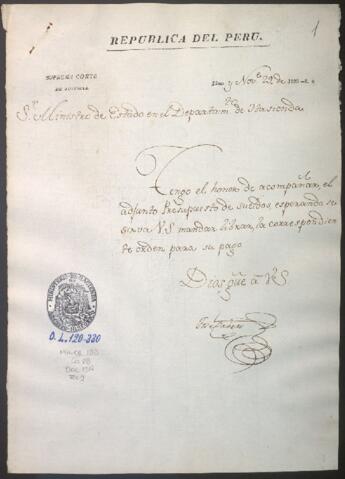 REPUBLICA DEL PERU.
1
SUPREMA CORTE
DE JUSTICIA
y Nov.e 22 de
S.r Ministro de Estado en el Departam.to de Hacienda
Tengo el honor de acompañar, el
adjunto Presupuesto de sueldos, esperando se
sirva VS mandar librar, la correspondien
te orden para su pago
Dios gũe à VS
O.L. 120-330